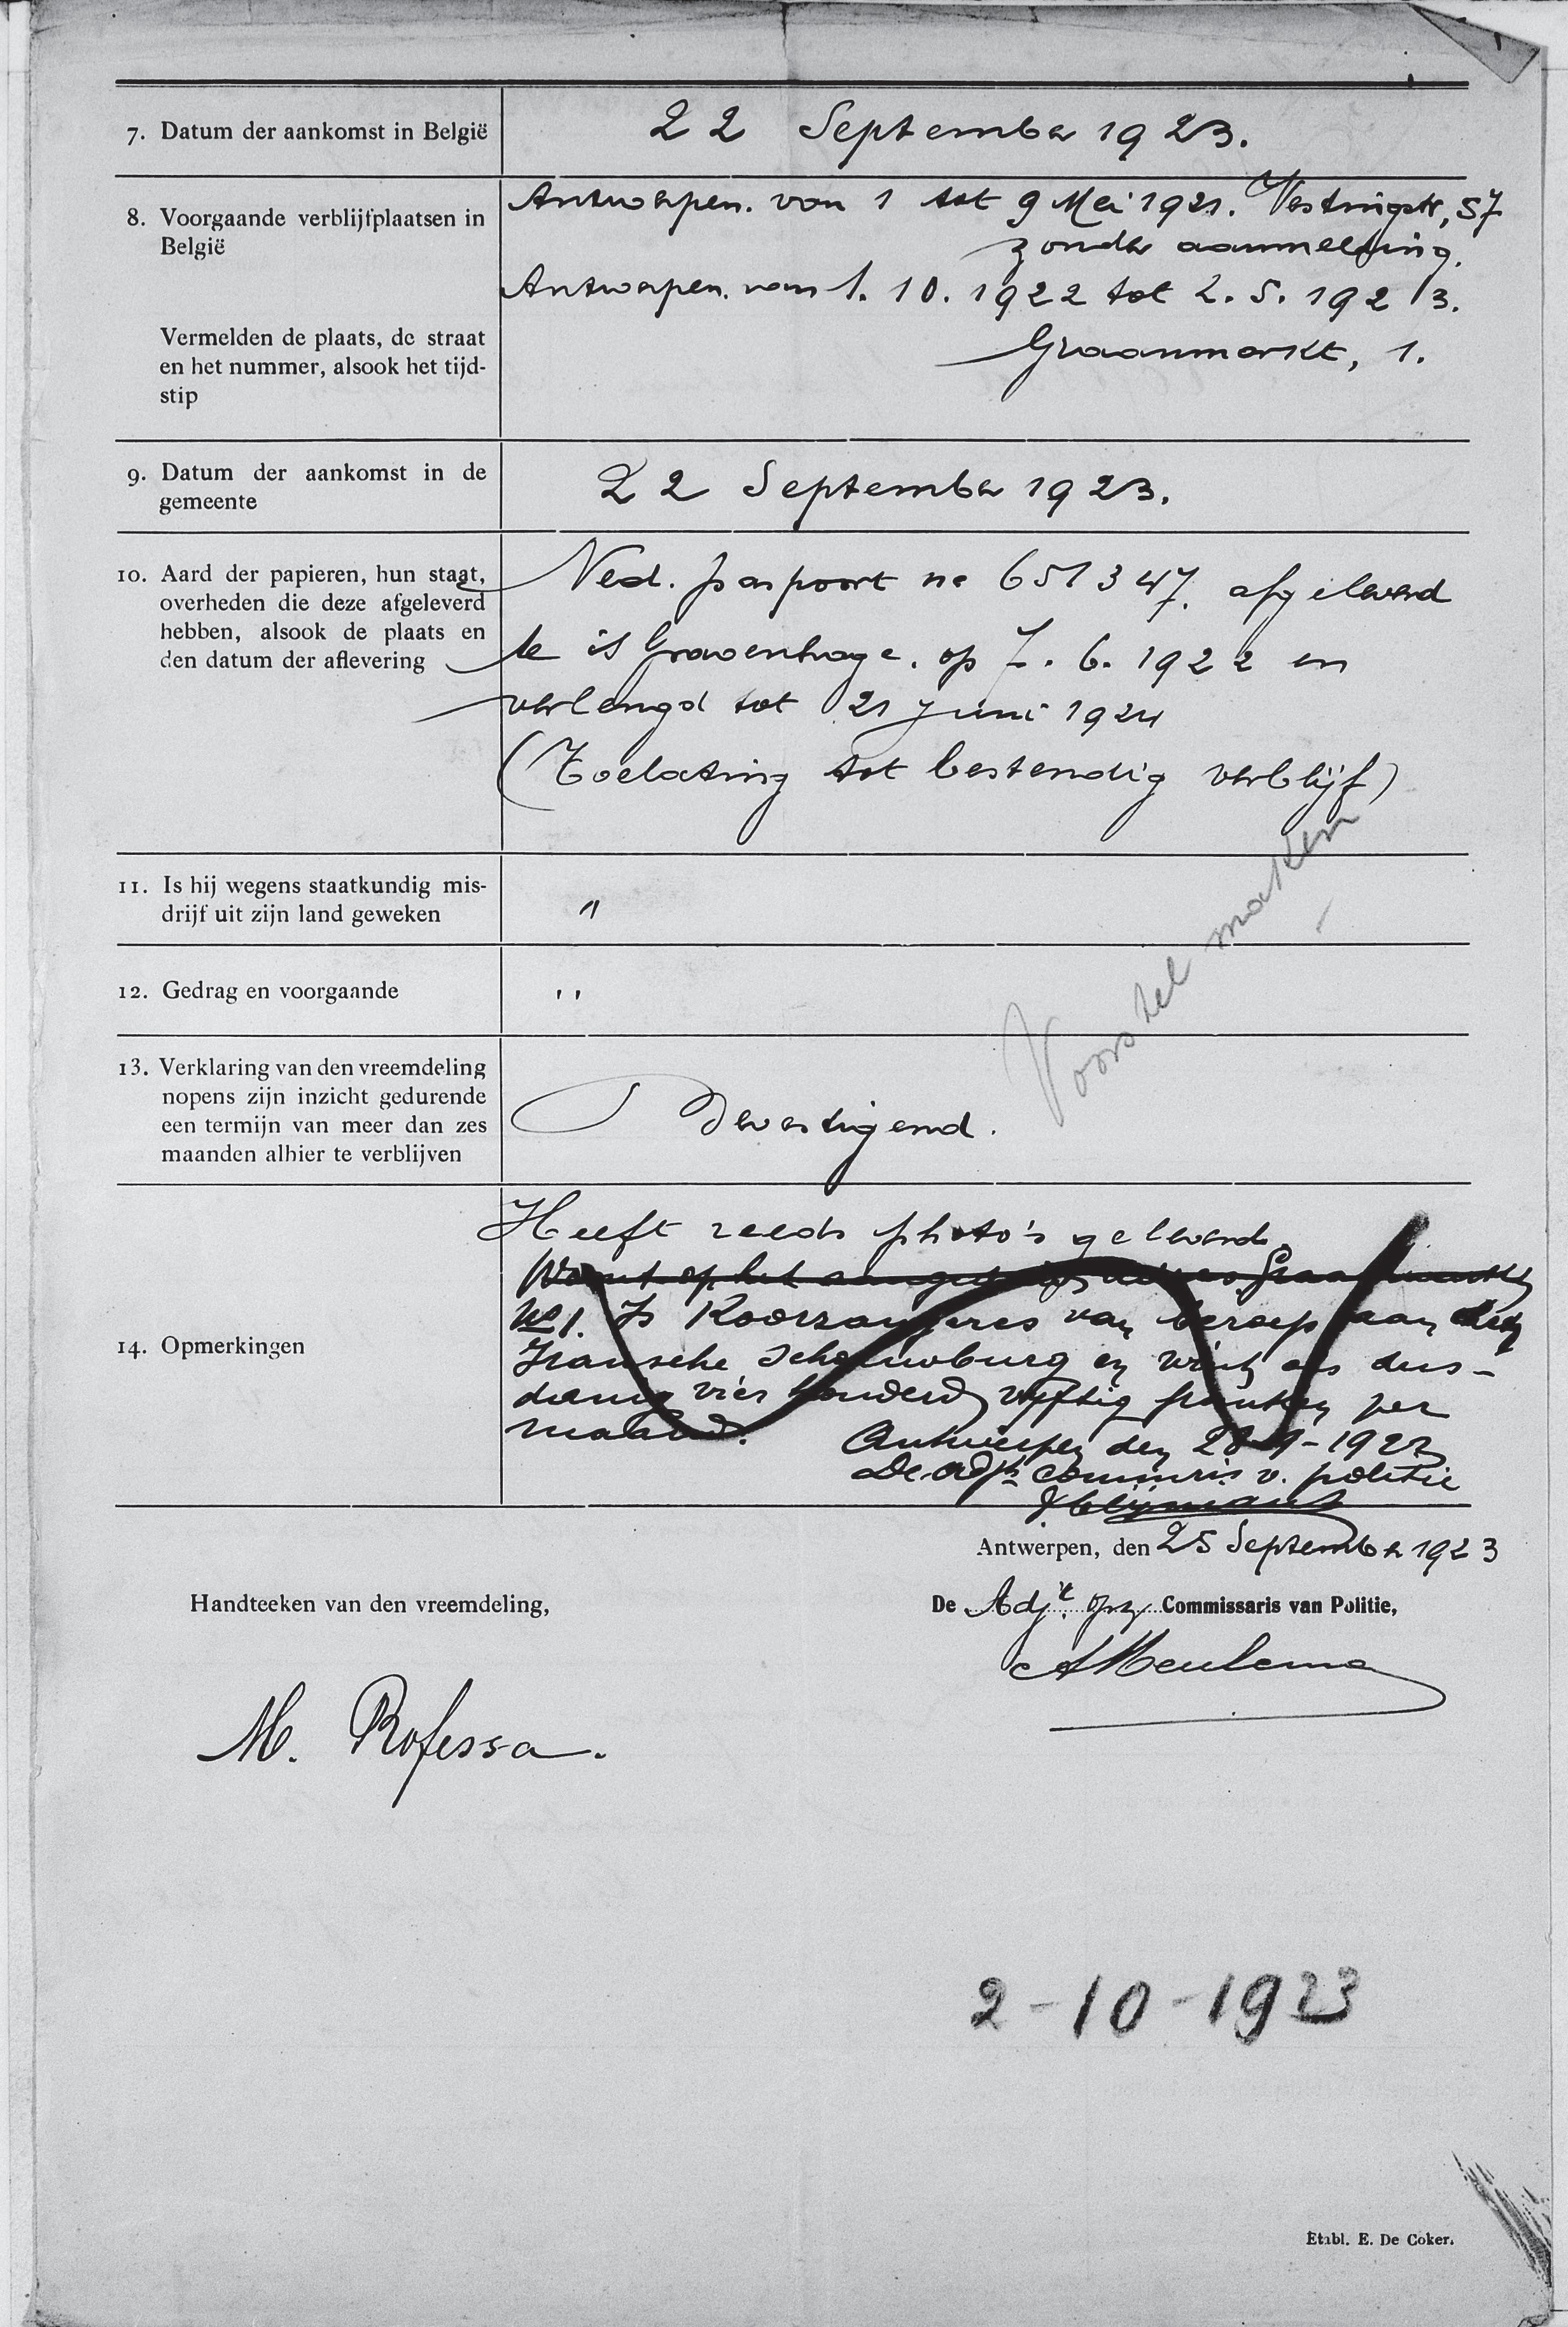 7. Datum der aankomst in België
22 September 1923.
8. Voorgaande verblijfplaatsen in
België
Vermelden de plaats, de straat
en het nummer, alsook het tijd-
stip
Antwerpen. van 1 tot 9 Mei 1921. Vestingstr, 57
zonder aanmelding.
Antwerpen. van 1. 10. 1922 tot 2. 5. 1923.
Graanmarkt, 1.
9. Datum der aankomst in de
gemeente
22 September 1923.
10. Aard der papieren, hun staat,
overheden die deze afgeleverd
hebben, alsook de plaats en
den datum der aflevering
Ned. paspoort no 651347. afgeleverd
te 's Gravenhage. op 7. 6. 1922 en
verlengd tot 21 Juni 1924
(Toelating tot bestendig verblijf)
11. Is hij wegens staatkundig mis-
drijf uit zijn land geweken
"
12. Gedrag en voorgaande
"
Voorstel maken
13. Verklaring van den vreemdeling
nopens zijn inzicht gedurende
een termijn van meer dan zes
maanden alhier te verblijven
Bevestigend.
14. Opmerkingen
Heeft reeds photo's geleverd.
Woont op het aangeduide adres Graanmarkt
No 1. Is Koorzangeres van beroep aan den
Fransche Schouwburg en wint als dus-
danig vier honderd vijftig franken per
maand.
Antwerpen den 28-9-1923
De adjt commris v. politie
Antwerpen, den 25 September 1923
Handteeken van den vreemdeling,
De Adjt. Commissaris van Politie,
AMeulema
M. Rofessa.
2-10-1923
Etabl. E. De Coker.